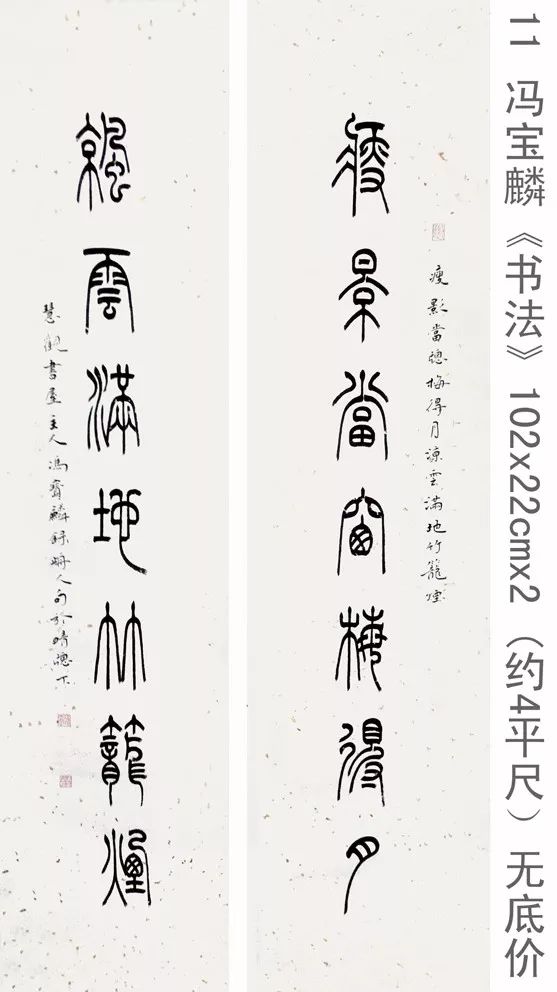 11 冯宝麟《书法》102x22cmx2（约4平尺）无底价
瘦影當牕梅得月涼雲滿地竹籠煙
瘦景當窗梅得月
䬙雲滿地竹籠煙
慧觀書屋主人馮寶麟錄人句於晴牕下